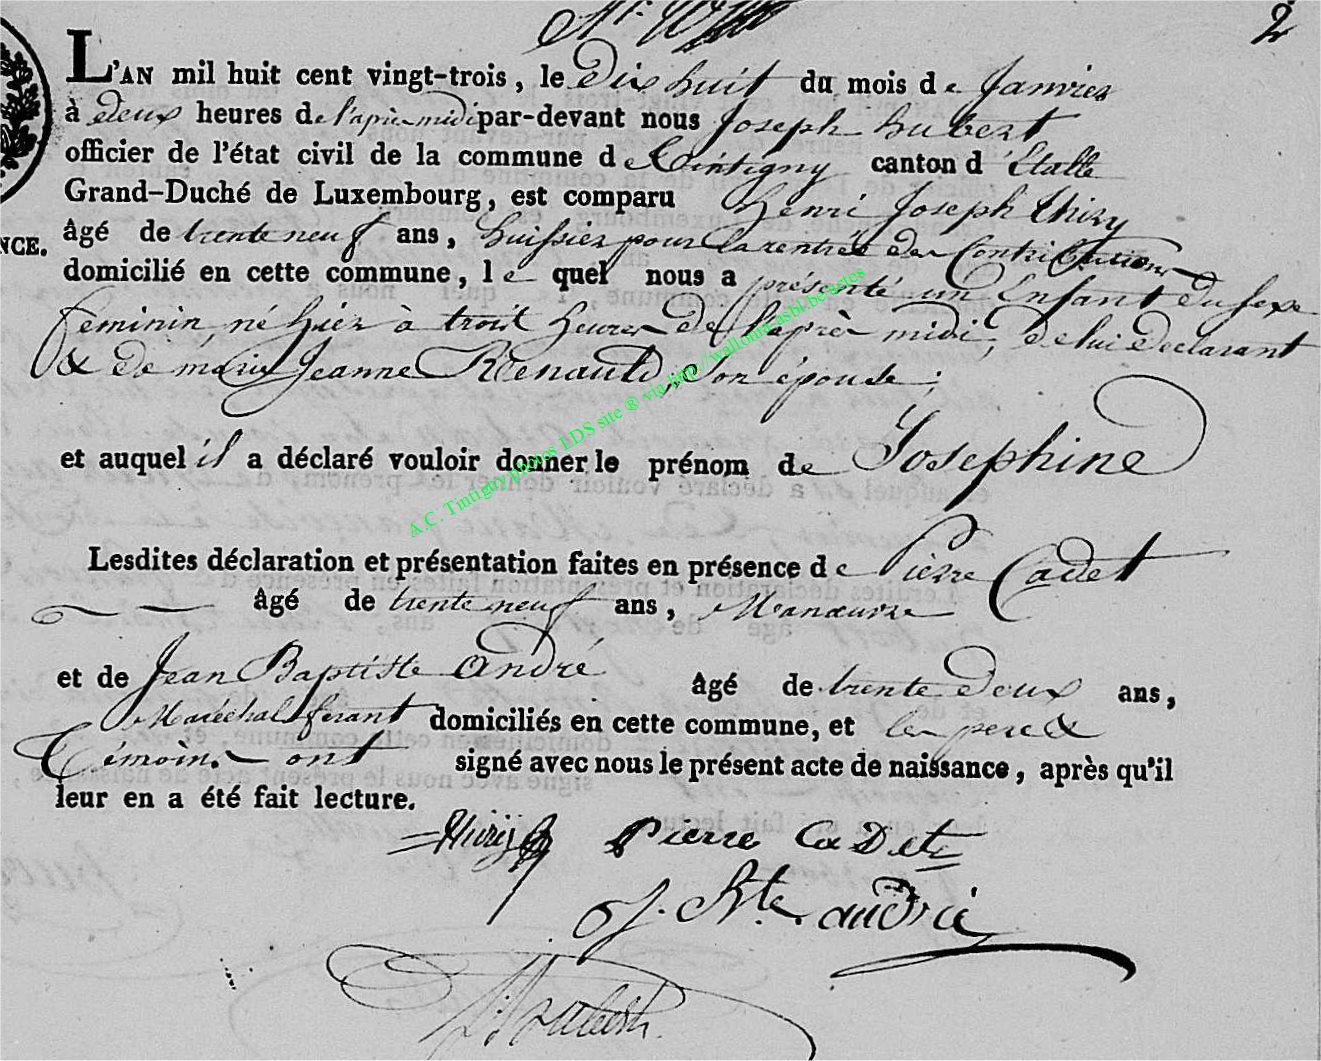 2
L'AN mil huit cent vingt-trois, le Dix huit du mois de Janvier
à deux heures de l'apres midi par-devant nous Joseph hubert
officier de l'état civil de la commune de Tintigny canton d'Etalle
Grand-Duché de Luxembourg, est comparu henri Joseph thiry
NCE. âgé de trente neuf ans, huissier pour la rentrée des Contributions
domicilié en cette commune, le quel nous a présenté un Enfant du sexe
feminin né hier à trois heures de l'après midi, de lui declarant
& de marie Jeanne Renauld, son épouse;
et auquel il a déclaré vouloir donner le prénom de Josephine
Lesdites déclaration et présentation faites en présence de Pierre Cadet
âgé de trente neuf ans, Manœuvre
et de Jean Baptiste andré âgé de trente deux ans,
Maréchal ferant domiciliés en cette commune, et les pere &
témoins ont signé avec nous le présent acte de naissance, après qu'il
leur en a été fait lecture.
Thiry Pierre CaDet
J. Bte. andrié
J. Hubert
A.C. Tintigny photos LDS site ® via http://wallonia-asbl.be/actes